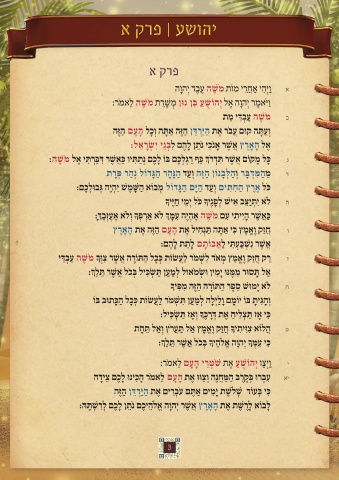 יהושע | פרק א
פרק א
א וַיְהִי אַחֲרֵי מוֹת מֹשֶׁה עֶבֶד יְהוָה
וַיֹּאמֶר יְהוָה אֶל יְהוֹשֻׁעַ בִּן נוּן מְשָׁרֵת מֹשֶׁה לֵאמֹר:
ב מֹשֶׁה עַבְדִּי מֵת
וְעַתָּה קוּם עֲבֹר אֶת הַיַּרְדֵּן הַזֶּה אַתָּה וְכָל הָעָם הַזֶּה
אֶל הָאָרֶץ אֲשֶׁר אָנֹכִי נֹתֵן לָהֶם לִבְנֵי יִשְׂרָאֵל:
ג כָּל מָקוֹם אֲשֶׁר תִּדְרֹךְ כַּף רַגְלְכֶם בּוֹ לָכֶם נְתַתִּיו כַּאֲשֶׁר דִּבַּרְתִּי אֶל מֹשֶׁה:
ד מֵהַמִּדְבָּר וְהַלְּבָנוֹן הַזֶּה וְעַד הַנָּהָר הַגָּדוֹל נְהַר פְּרָת
כֹּל אֶרֶץ הַחִתִּים וְעַד הַיָּם הַגָּדוֹל מְבוֹא הַשָּׁמֶשׁ יִהְיֶה גְּבוּלְכֶם:
ה לֹא יִתְיַצֵּב אִישׁ לְפָנֶיךָ כֹּל יְמֵי חַיֶּיךָ
כַּאֲשֶׁר הָיִיתִי עִם מֹשֶׁה אֶהְיֶה עִמָּךְ לֹא אַרְפְּךָ וְלֹא אֶעֶזְבֶךָּ:
ו חֲזַק וֶאֱמָץ כִּי אַתָּה תַּנְחִיל אֶת הָעָם הַזֶּה אֶת הָאָרֶץ
אֲשֶׁר נִשְׁבַּעְתִּי לַאֲבוֹתָם לָתֵת לָהֶם:
ז רַק חֲזַק וֶאֱמַץ מְאֹד לִשְׁמֹר לַעֲשׂוֹת כְּכָל הַתּוֹרָה אֲשֶׁר צִוְּךָ מֹשֶׁה עַבְדִּי
אַל תָּסוּר מִמֶּנּוּ יָמִין וּשְׂמֹאול לְמַעַן תַּשְׂכִּיל בְּכֹל אֲשֶׁר תֵּלֵךְ:
ח לֹא יָמוּשׁ סֵפֶר הַתּוֹרָה הַזֶּה מִפִּיךָ
וְהָגִיתָ בּוֹ יוֹמָם וָלַיְלָה לְמַעַן תִּשְׁמֹר לַעֲשׂוֹת כְּכָל הַכָּתוּב בּוֹ
כִּי אָז תַּצְלִיחַ אֶת דְּרָכֶךָ וְאָז תַּשְׂכִּיל:
ט הֲלוֹא צִוִּיתִיךָ חֲזַק וֶאֱמָץ אַל תַּעֲרֹץ וְאַל תֵּחָת
כִּי עִמְּךָ יְהוָה אֱלֹהֶיךָ בְּכֹל אֲשֶׁר תֵּלֵךְ:
י וַיְצַו יְהוֹשֻׁעַ אֶת שֹׁטְרֵי הָעָם לֵאמֹר:
יא עִבְרוּ בְּקֶרֶב הַמַּחֲנֶה וְצַוּוּ אֶת הָעָם לֵאמֹר הָכִינוּ לָכֶם צֵידָה
כִּי בְּעוֹד שְׁלֹשֶׁת יָמִים אַתֶּם עֹבְרִים אֶת הַיַּרְדֵּן הַזֶּה
לָבוֹא לָרֶשֶׁת אֶת הָאָרֶץ אֲשֶׁר יְהוָה אֱלֹהֵיכֶם נֹתֵן לָכֶם לְרִשְׁתָּהּ:
3